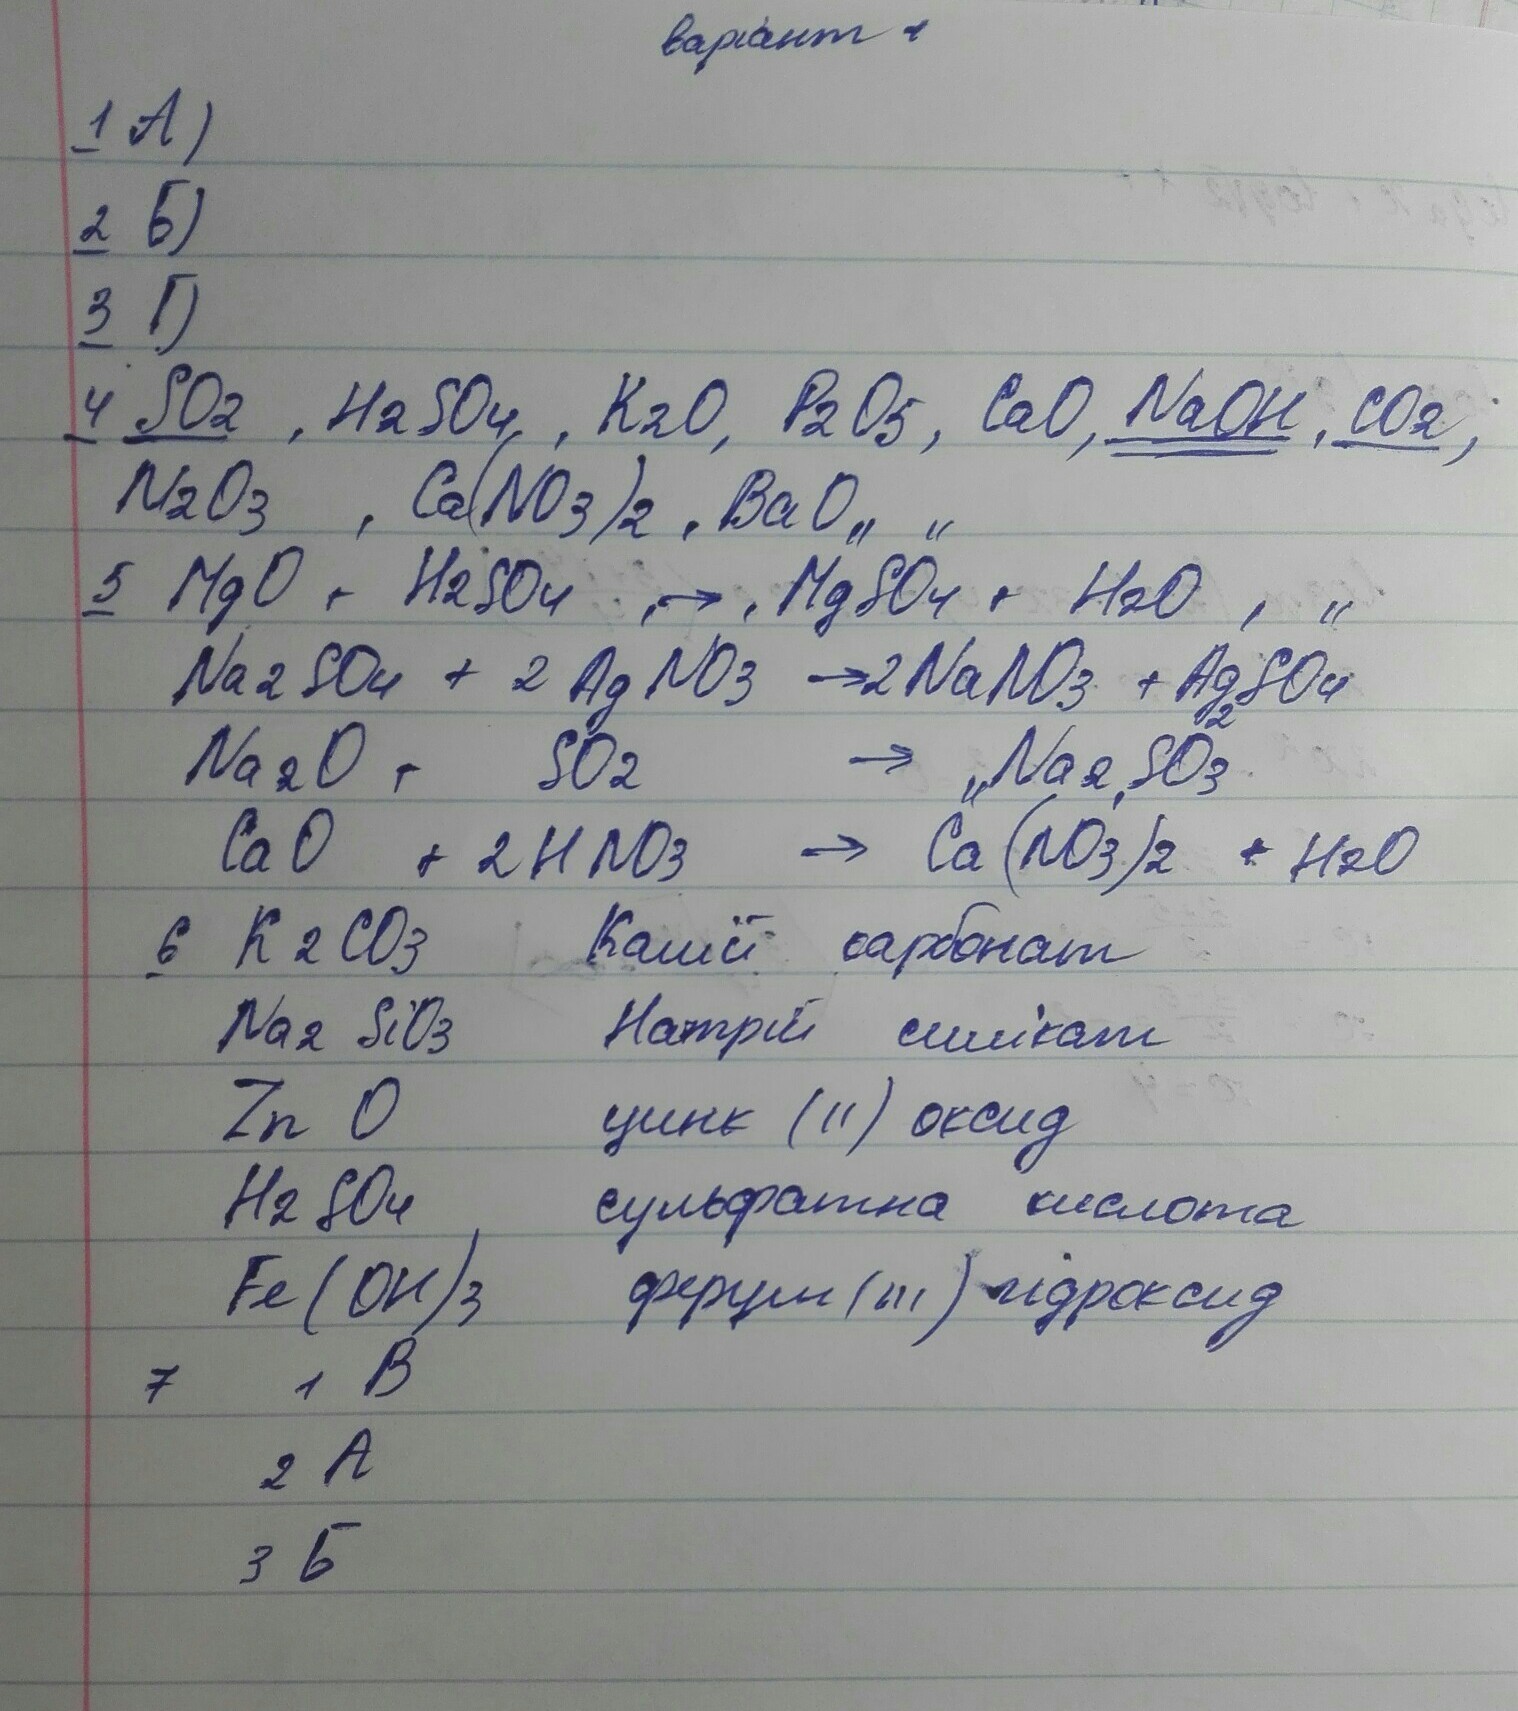 варіант 1
1 А)
2 Б)
3 Г)
4 SO2, H2SO4, K2O, P2O5, CaO, NaOH, CO2,
N2O3, Ca(NO3)2, BaO,, ,,
5 MgO + H2SO4 → MgSO4 + H2O, ,,
Na2SO4 + 2AgNO3 → 2NaNO3 + Ag2SO4
Na2O + SO2 → Na2SO3
CaO + 2HNO3 → Ca(NO3)2 + H2O
6 K2CO3 Калій карбонат
Na2SiO3 Натрій силікат
ZnO цинк (II) оксид
H2SO4 сульфатна кислота
Fe(OH)3 (III) гідроксид
7 1 В
2 А
3 Б